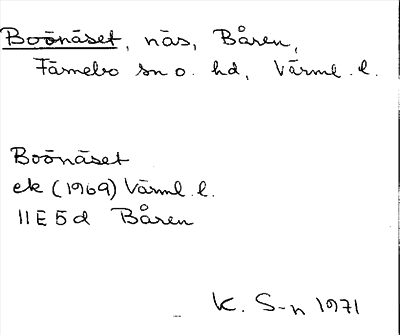 Boönäset, näs, Båren,
Färnebo sn o. hd, Värml. l.
Boönäset
ek (1969) Värml. l.
11E5d Båren
K. S-n 1971